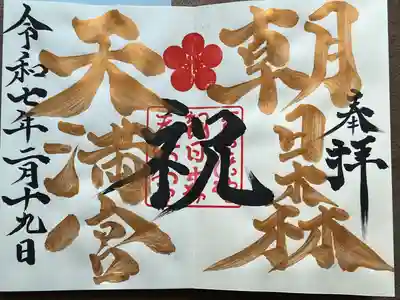 奉拝
朝日森
祝
天満宮
令和七年二月十九日